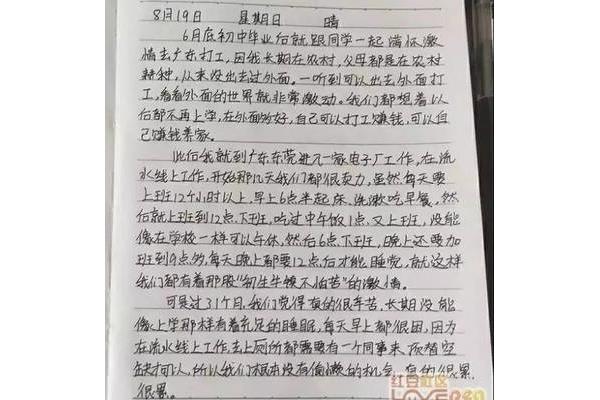 8月19日 星期日 晴
6月底初中毕业后就跟同学一起满怀激
情去广东打工，因我长期在农村，父母都是在农村
耕种，从来没出去过外面。一听到可以出去外面打
工，看看外面的世界就非常激动。我们都想着以
后都不再上学，在外面多好，自己可以打工赚钱，可以自
己赚钱养家。
此后我就到广东东莞进入一家电子厂工作，在流
水线上工作，开始那几天我们都很卖力，虽然每天要
上班12个小时以上，早上6点半起床、洗漱吃早餐，然
后就上班到12点下班，吃过中午饭1点又上班，没能
像在学校一样可以午休，然后6点下班，晚上还要加
班到9点多，每天晚上都要12点后才能睡觉，就这样
我们都有着那股"初生牛犊不怕苦"的激情。
可是过31个月，我们觉得真的很辛苦，长期没能
像上学那样有着充足的睡眠，每天早上都很困，因为
在流水线上工作去上厕所都需要有一个同事来顶替空
缺才可以，所以我们根本没有偷懒的机会，真的很累
很累。
红豆社区